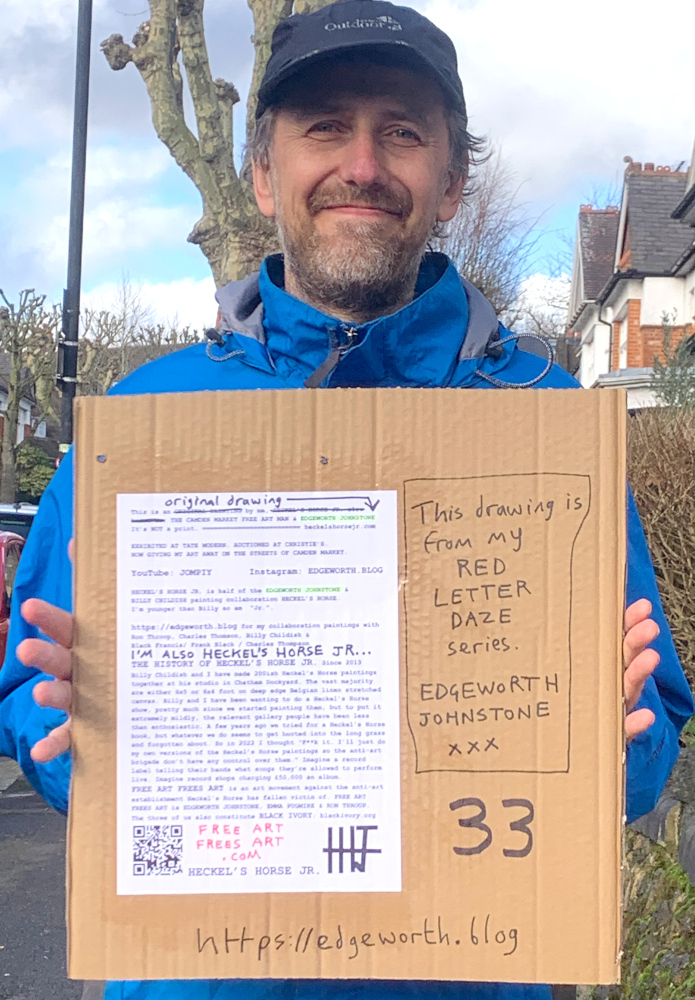 Outdoor
original drawing
This is an ORIGINAL PAINTING by me, HECKEL'S HORSE JR. aka
THE CAMDEN MARKET FREE ART MAN & EDGEWORTH JOHNSTONE
It's NOT a print. heckelshorsejr.com
EXHIBITED AT TATE MODERN. AUCTIONED AT CHRISTIE'S.
NOW GIVING MY ART AWAY ON THE STREETS OF CAMDEN MARKET.
YouTube: JOMPIY Instagram: EDGEWORTH.BLOG
HECKEL'S HORSE JR. is half of the EDGEWORTH JOHNSTONE &
BILLY CHILDISH painting collaboration HECKEL'S HORSE.
I'm younger than Billy so am "Jr.".
https://edgeworth.blog for my collaboration paintings with
Ron Throop, Charles Thomson, Billy Childish &
Black Francis/ Frank Black / Charles Thompson
I'M ALSO HECKEL'S HORSE JR...
THE HISTORY OF HECKEL'S HORSE JR. Since 2013
Billy Childish and I have made 200ish Heckel's Horse paintings
together at his studio in Chatham Dockyard. The vast majority
are either 6x5 or 6x4 foot on deep edge Belgian linen stretched
canvas. Billy and I have been wanting to do a Heckel's Horse
show, pretty much since we started painting them, but to put it
extremely mildly, the relevant gallery people have been less
than enthusiastic. A few years ago we tried for a Heckel's Horse
book, but whatever we do seems to get booted into the long grass
and forgotten about. So in 2022 I thought "F**k it. I'll just do
my own versions of the Heckel's Horse paintings so the anti-art
brigade don't have any control over them." Imagine a record
label telling their bands what songs they're allowed to perform
live. Imagine record shops charging £50,000 an album.
FREE ART FREES ART is an art movement against the anti-art
establishment Heckel's Horse has fallen victim of. FREE ART
FREES ART is EDGEWORTH JOHNSTONE, EMMA PUGMIRE & RON THROOP.
The three of us also constitute BLACK IVORY: blackivory.org
FREE ART
FREES ART
.COM
HECKEL'S HORSE JR.
HJ
This drawing is
from my
RED
LETTER
DAZE
series.
EDGEWORTH
JOHNSTONE
xxx
33
https://edgeworth.blog